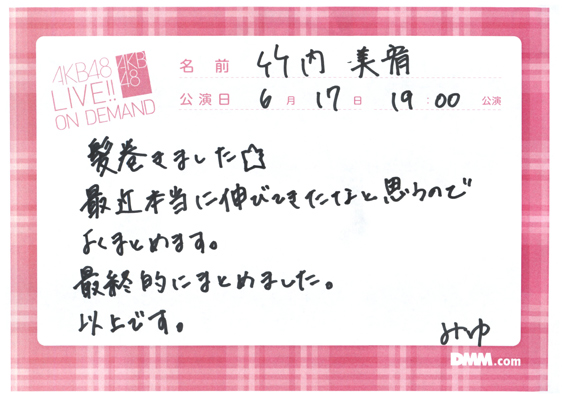 AKB48
LIVE!!
ON DEMAND
AKB
48
名前 竹内 美宥
公演日 6月 17日 19:00 公演
髪巻きました☆
最近本当に伸びてきたなと思うので
よくまとめます。
最終的にまとめました。
以上です。
みゆ
DMM.com